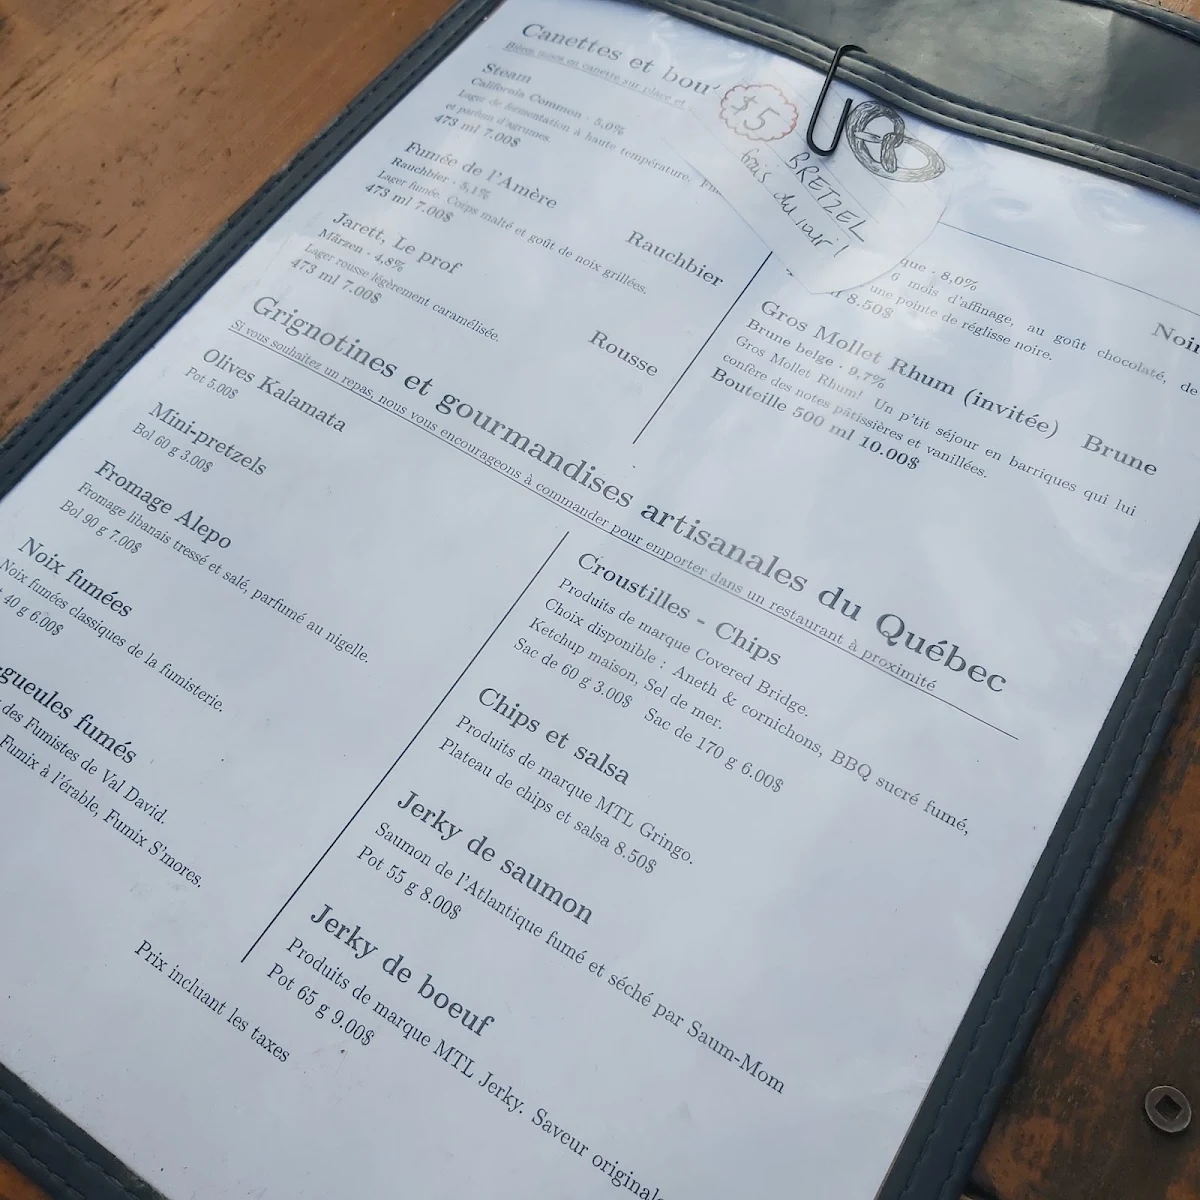 Canettes et bou
Bières mises en canette sur place et
Steam
California Common · 5,0%
Lager de fermentation à haute température.
et parfum d'agrumes.
473 ml 7.00$
Fumée de l'Amère
Rauchbier
Rauchbier · 5,1%
Lager fumée. Corps malté et goût de noix grillées.
473 ml 7.00$
Jarett, Le prof
Rousse
Märzen · 4,8%
Lager rousse légèrement caramélisée.
473 ml 7.00$
$5
BRETZEL
frais du jour!
Noir
que · 8,0%
6 mois d'affinage, au goût chocolaté, de
une pointe de réglisse noire.
8.50$
Gros Mollet Rhum (invitée)
Brune
Brune belge · 9,7%
Gros Mollet Rhum! Un p'tit séjour en barriques qui lui
confère des notes pâtissières et vanillées.
Bouteille 500 ml 10.00$
Grignotines et gourmandises artisanales du Québec
Si vous souhaitez un repas, nous vous encourageons à commander pour emporter dans un restaurant à proximité
Olives Kalamata
Pot 5.00$
Mini-pretzels
Bol 60 g 3.00$
Fromage Alepo
Fromage libanais tressé et salé, parfumé au nigelle.
Bol 90 g 7.00$
Noix fumées
Noix fumées classiques de la fumisterie.
40 g 6.00$
gueules fumés
des Fumistes de Val David.
Fumix à l'érable, Fumix S'mores.
Croustilles - Chips
Produits de marque Covered Bridge.
Choix disponible : Aneth & cornichons, BBQ sucré fumé,
Ketchup maison, Sel de mer.
Sac de 60 g 3.00$ Sac de 170 g 6.00$
Chips et salsa
Produits de marque MTL Gringo.
Plateau de chips et salsa 8.50$
Jerky de saumon
Saumon de l'Atlantique fumé et séché par Saum-Mom
Pot 55 g 8.00$
Jerky de boeuf
Produits de marque MTL Jerky. Saveur originale
Pot 65 g 9.00$
Prix incluant les taxes